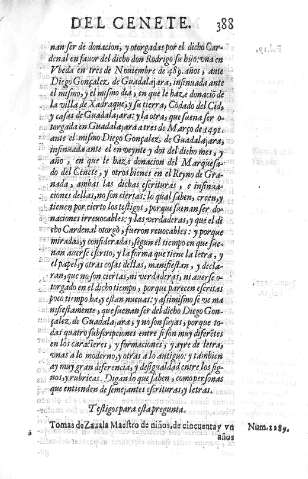 DEL CENETE. 388
nan ser de donacion, y otorgadas por el dicho Car-
denal en fauor del dicho don Rodrigo su hijo: vna en
Vbeda en tres de Nouiembre de 489. años, ante
Diego Gonçalez de Guadalajara, insinuada ante
el mismo, y el mismo dia, en que le haze donaciõ de
la villa de Xadraque, y su tierra, Cõdado del Cid,
y casas de Guadalajara: y la otra, que suena ser o-
torgada en Guadalajara a tres de Março de 1491.
ante el mismo Diego Gonçalez de Guadalajara,
insinuada ante el en veynte y dos del dicho mes, y
año, en que le haze donacion del Marquesa-
do del Cenete, y otros bienes en el Reyno de Gra-
nada, ambas las dichas escrituras, e insinua-
ciones dellas, no son ciertas: lo qual saben, creen, y
tienen por cierto los testigos, porque suenan ser do-
naciones irreuocables: y las verdaderas, y que el di-
cho Cardenal otorgò, fueron reuocables: y porque
miradas, y consideradas, segun el tiempo en que sue-
nan auerse escrito, y la forma que tiene la letra, y
el papel, y otras cosas dellas, manifiestan, y decla-
ran, que no son ciertas, ni verdaderas, ni auerse o-
torgado en el dicho tiempo, porque parecen escritas
poco tiempo ha, y estan nueuas: y assimismo se ve ma
nifiestamente, que suenan ser del dicho Diego Gon-
çalez de Guadalajara, y no son suyas, porque to-
das quatro subscripciones entre si son muy diferẽtes
en los caracteres, y formaciones, y ayre de letra,
vnas a lo moderno, y otras a lo antiguo: y tambien
ay muy gran diferencia, y desigualdad entre los sig-
nos, y rubricas. Digan lo que saben, como personas
que entienden de semejantes escrituras y letras.
Testigos para esta pregunta.
Tomas de Zauala Maestro de niños, de cincuenta y vn Num. 1189.
años